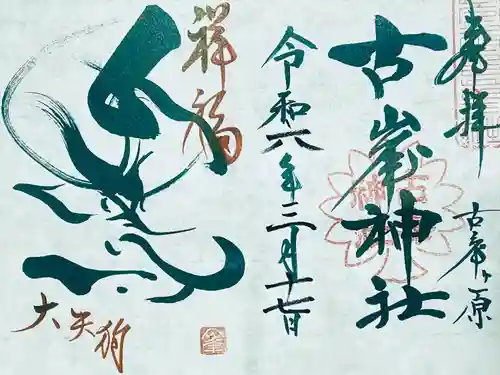 奉拝
古峯ヶ原
古峯神社
令和六年三月十七日
祥福
大天狗